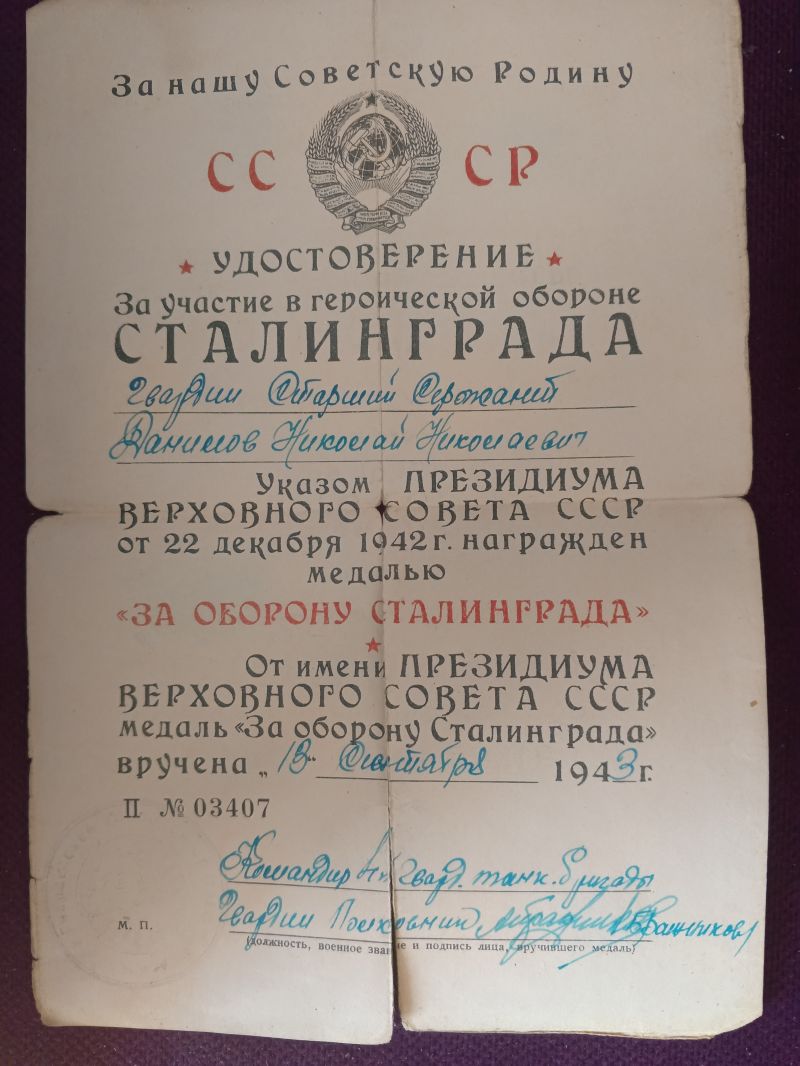 За нашу Советскую Родину
СССР
УДОСТОВЕРЕНИЕ
За участие в героической обороне
СТАЛИНГРАДА
Гвардии Старший Сержант
Данилов Николай Николаевич
Указом ПРЕЗИДИУМА
ВЕРХОВНОГО СОВЕТА СССР
от 22 декабря 1942 г. награжден
медалью
«ЗА ОБОРОНУ СТАЛИНГРАДА»
От имени ПРЕЗИДИУМА
ВЕРХОВНОГО СОВЕТА СССР
медаль «За оборону Сталинграда»
вручена „13“ Сентября 1943 г.
П № 03407
Командир Гвард. танк. бригады
Гвардии Полковник
М. П.
(должность, военное звание и подпись лица, вручившего медаль)